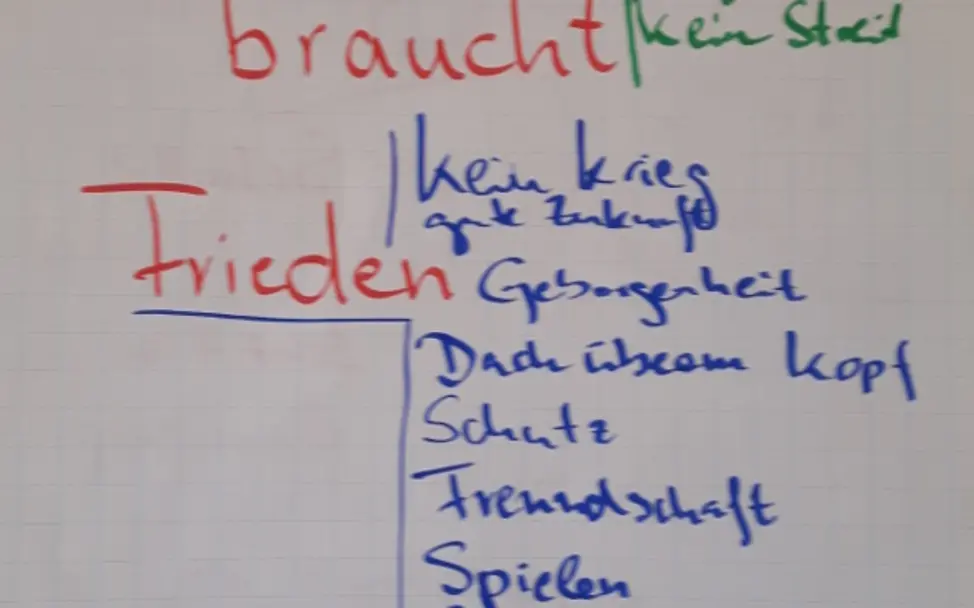 braucht kein Streit
kein krieg
gute Zukunft
Frieden Geborgenheit
Dach überm kopf
Schutz
Freundschaft
Spielen